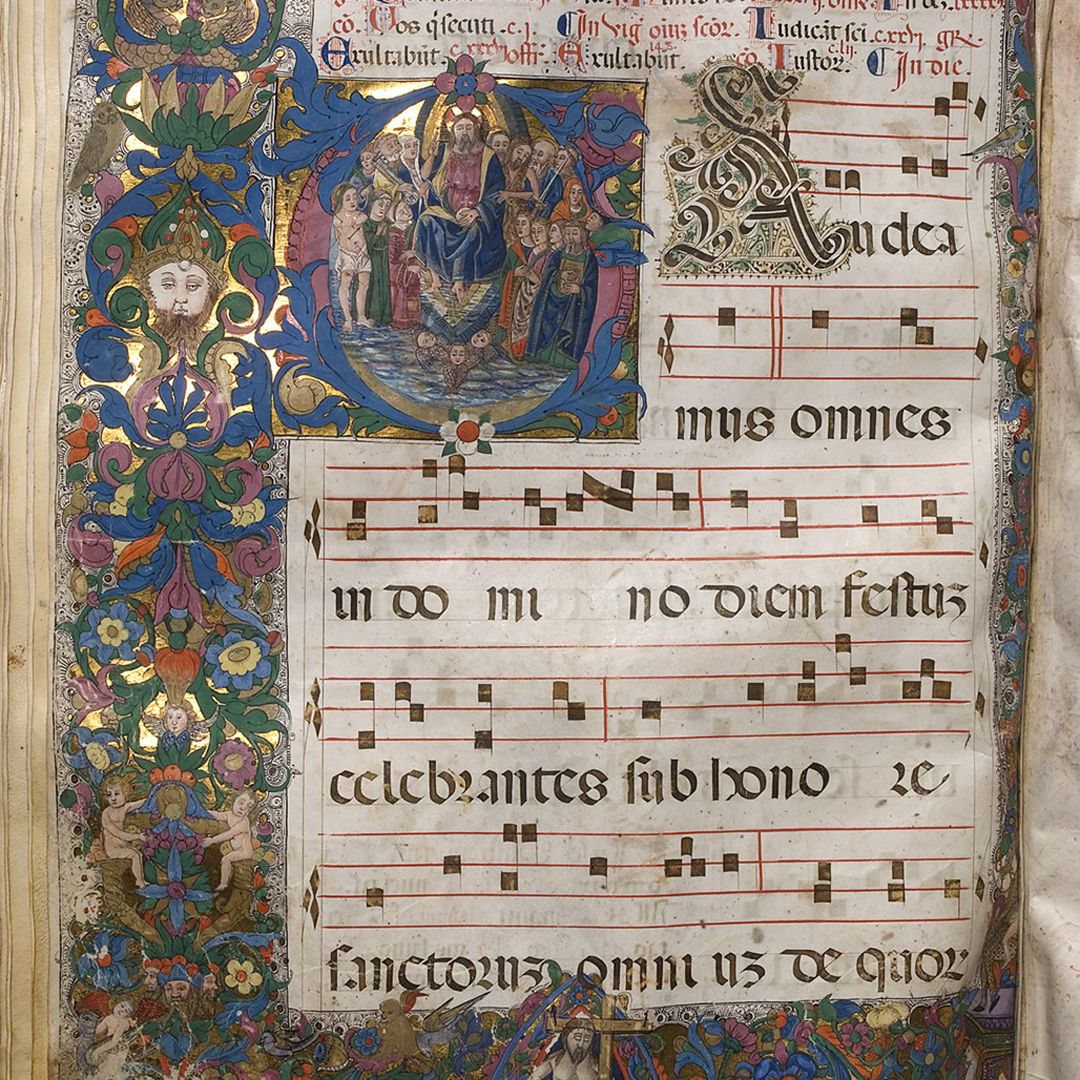 cō. Vos q̄ secuti .c.j. ¶ In Vig oīuz scōr. Iudicāt scī .c.xxvj. gr̄.
Exultabūt. c.xxxvj offr̄. Exultabūt. 143. cō. Iustor̄. c.lij. ¶ In die.
GAudea
mus omnes
in do mi no diem festuꝫ
celebrantes sub hono re
sanctoruꝫ omni uꝫ de quor